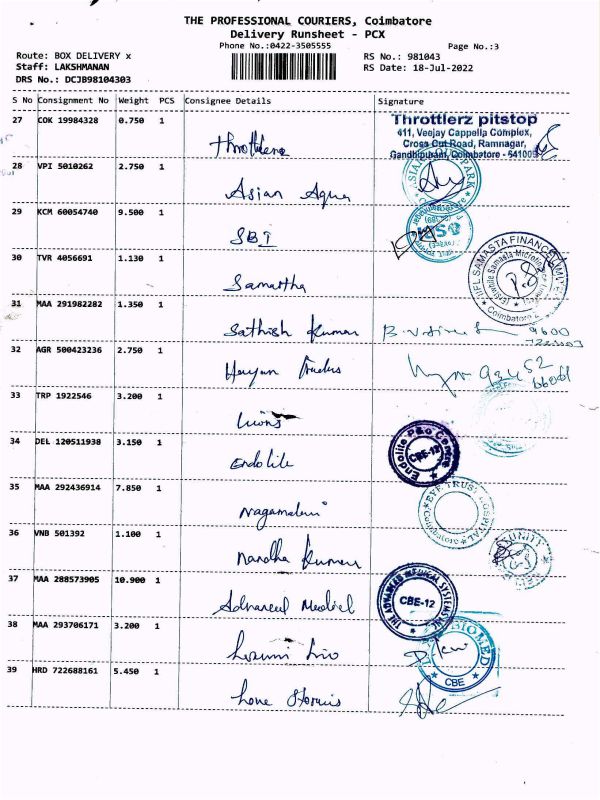 THE PROFESSIONAL COURIERS, Coimbatore
Delivery Runsheet - PCX
Phone No.:0422-3505555
Page No.:3
Route: BOX DELIVERY x
RS No.: 981043
Staff: LAKSHMANAN
RS Date: 18-Jul-2022
DRS No.: DCJB98104303
S No Consignment No Weight PCS Consignee Details Signature
27 COK 19984328 0.750 1
Throttlerz pitstop
411, Veejay Cappella Complex,
Cross Cut Road, Ramnagar,
Gandhipuram, Coimbatore - 641009
28 VPI 5010262 2.750 1
Asian Aqua
29 KCM 60054740 9.500 1
SBI
30 TVR 4056691 1.130 1
Samastha
IIFL SAMASTA FINANCE LIMITED
Coimbatore 2
31 MAA 291982282 1.350 1
Sathish Kumar
9600
32 AGR 500423236 2.750 1
33 TRP 1922546 3.200 1
Lions
34 DEL 120511938 3.150 1
Endolite
Endolite P&O Centre
CBE-12
35 MAA 292436914 7.850 1
Nagamalai
EYE TRUST HOSPITAL
Coimbatore
36 VNB 501392 1.100 1
Nandha Kumar
37 MAA 288573905 10.900 1
Advanced Medical
THE ADVANCED MEDICAL SYSTEMS INC
CBE-12
38 MAA 293706171 3.200 1
BIOMED
CBE
39 HRD 722688161 5.450 1
Love